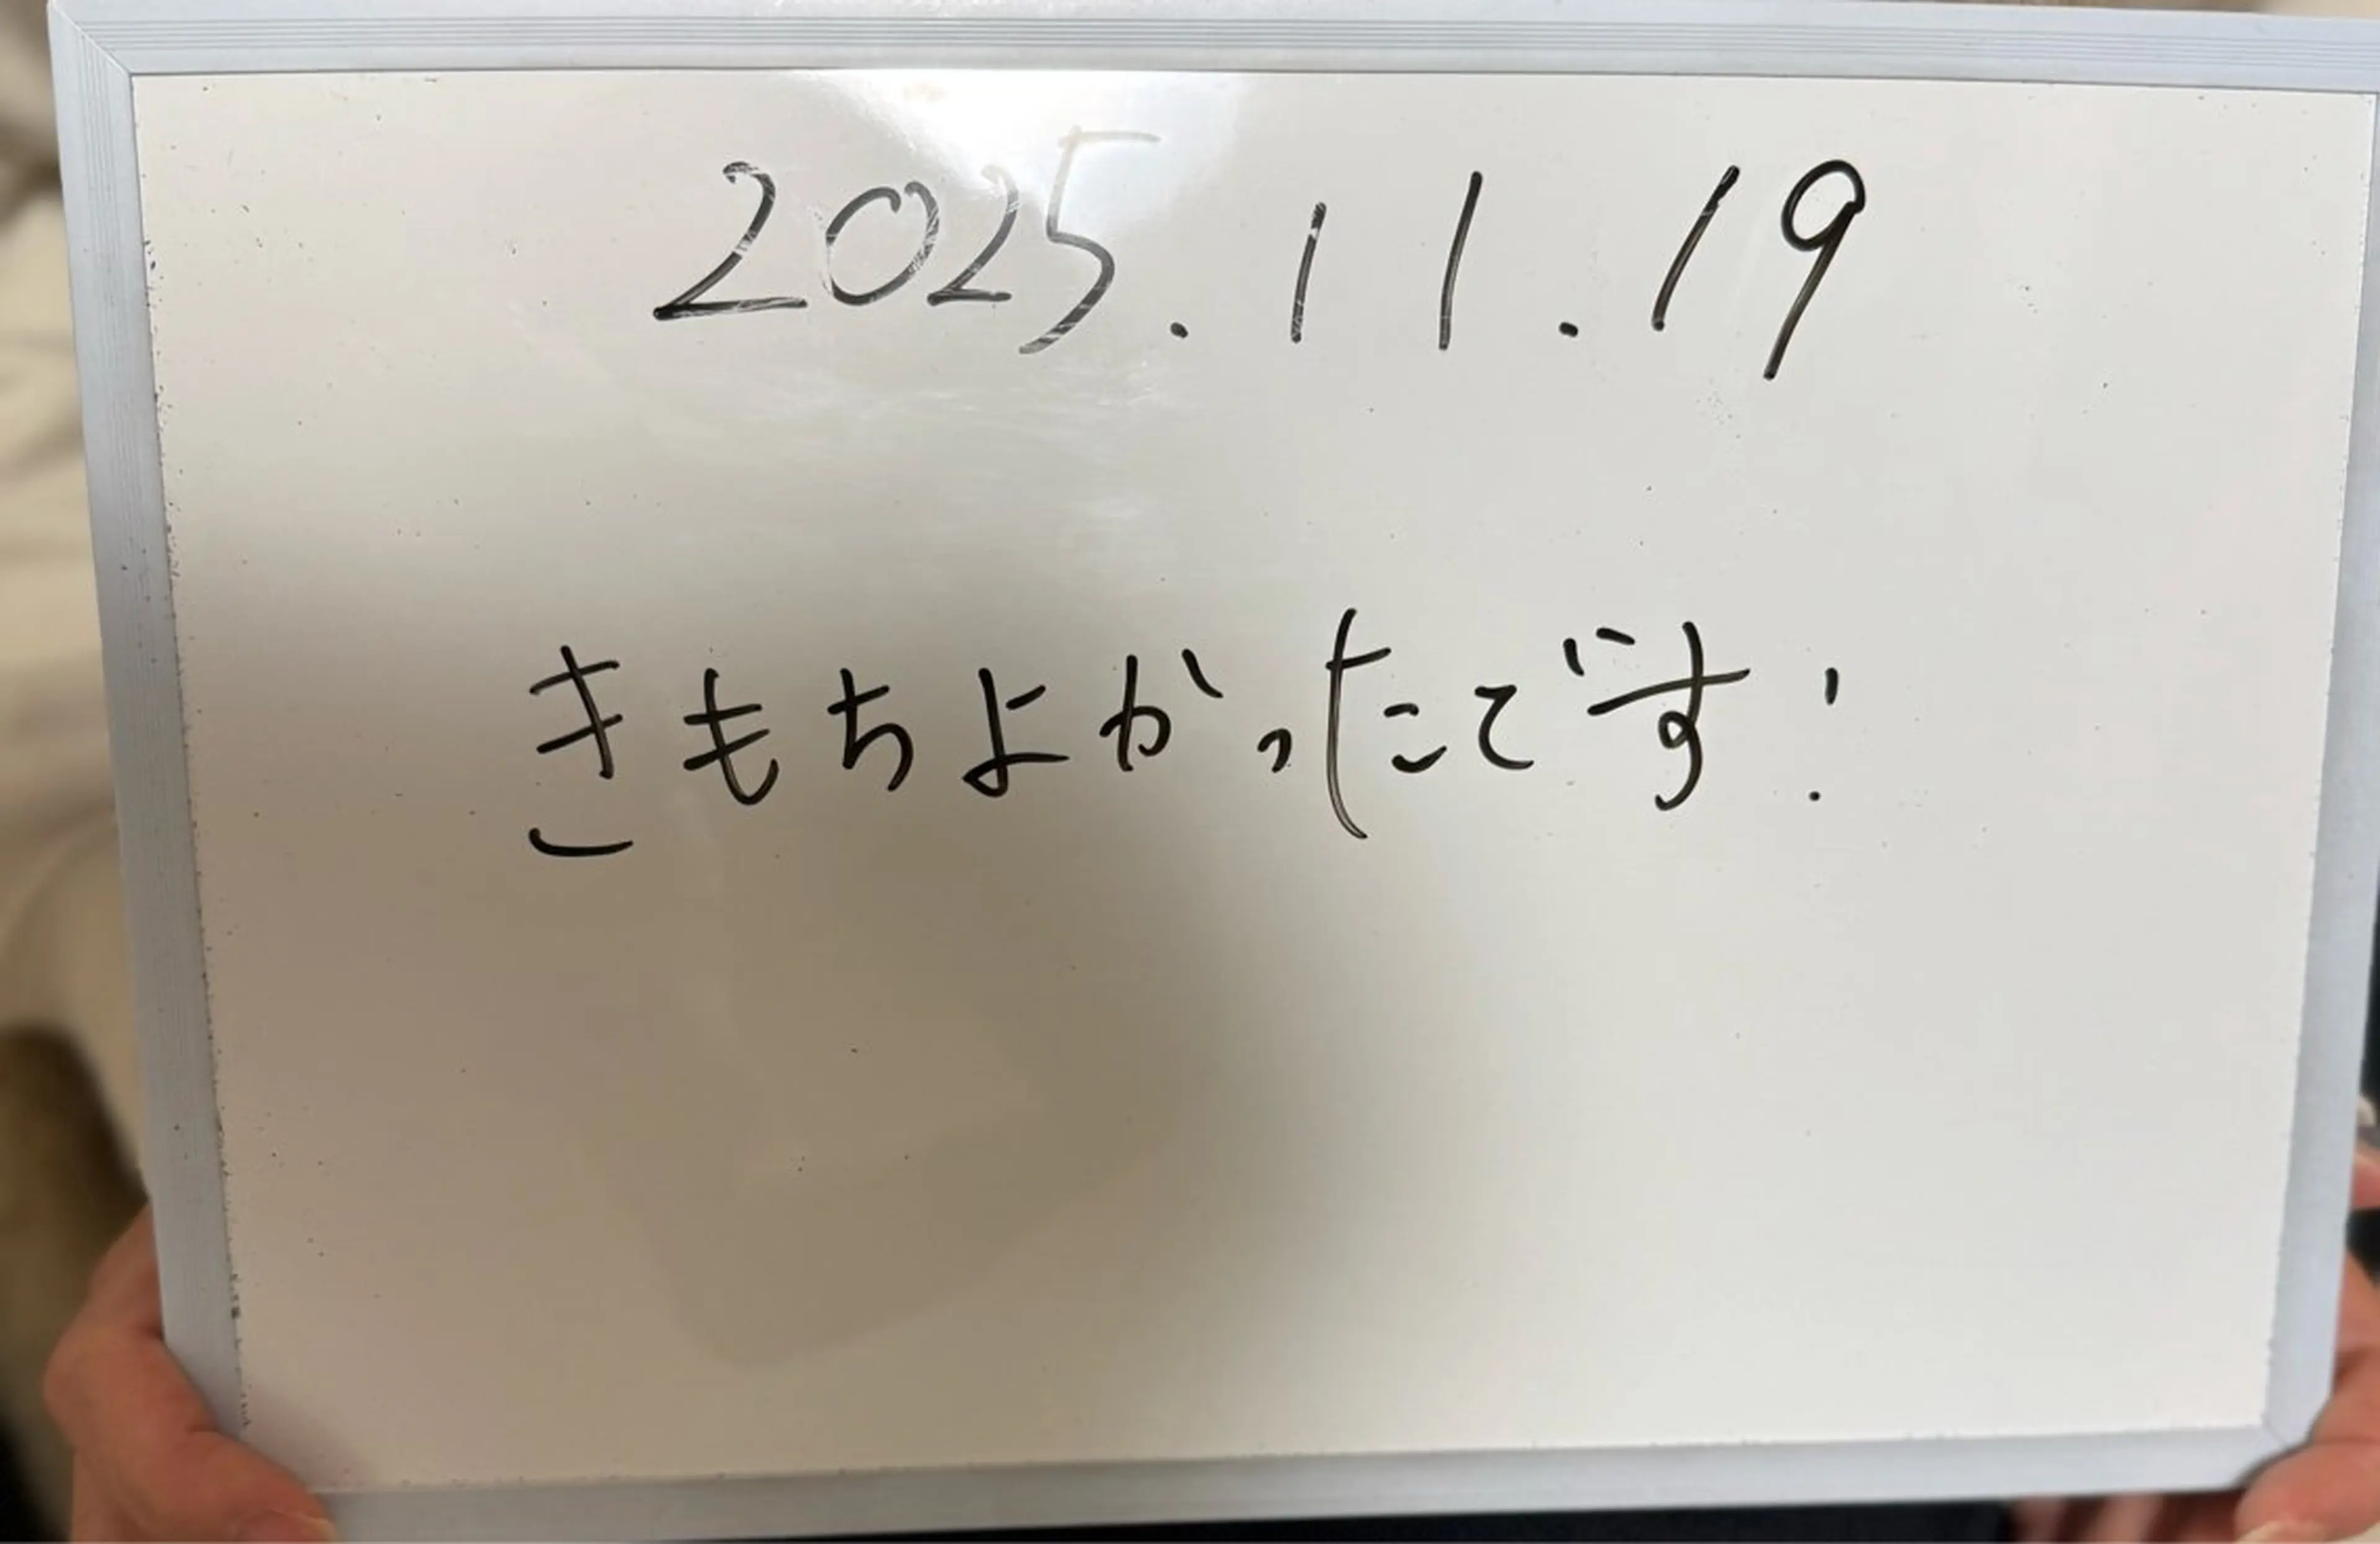 2025.11.19
きもちよかったです!